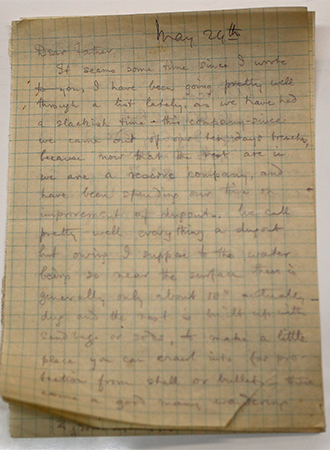 May 29th
Dear Father,
It seems some time since I wrote
to you, I have been going pretty well
through a list lately, as we have had
a slackish time - this company - since
we came out of our ten days trenches,
because now that the rest are in
we are a reserve company, and
have been spending our time on
improvement of dugouts. We call
pretty well everything a dugout
but owing I suppose to the water
being so near the surface there is
generally only about 18" actually
dug and the rest is built up with
sandbags or sods, to make a little
place you can crawl into for pro-
tection from shell or bullets, there
come a good many wandering